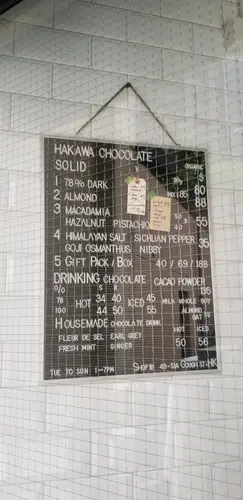 HAKAWA CHOCOLATE
SOLID ORGANIC
1 78% DARK
2 ALMOND 85 80
3 MACADAMIA 88
HAZALNUT PISTACHIO 55
4 HIMALAYAN SALT SICHUAN PEPPER 35
GOJI OSMANTHUS NIBBY
5 GIFT PACK / BOX 40 / 69 / 188
DRINKING CHOCOLATE CACAO POWDER
% S R 135
78 HOT 34 40 ICED 45 MILK WHOLE SOY
100 44 50 55 ALMOND
OAT
HOUSEMADE CHOCOLATE DRINK
FLEUR DE SEL EARL GREY HOT ICED
FRESH MINT GINGER 50 56
TUE TO SUN 1-7PM SHOP III 49-51A GOUGH ST. HK